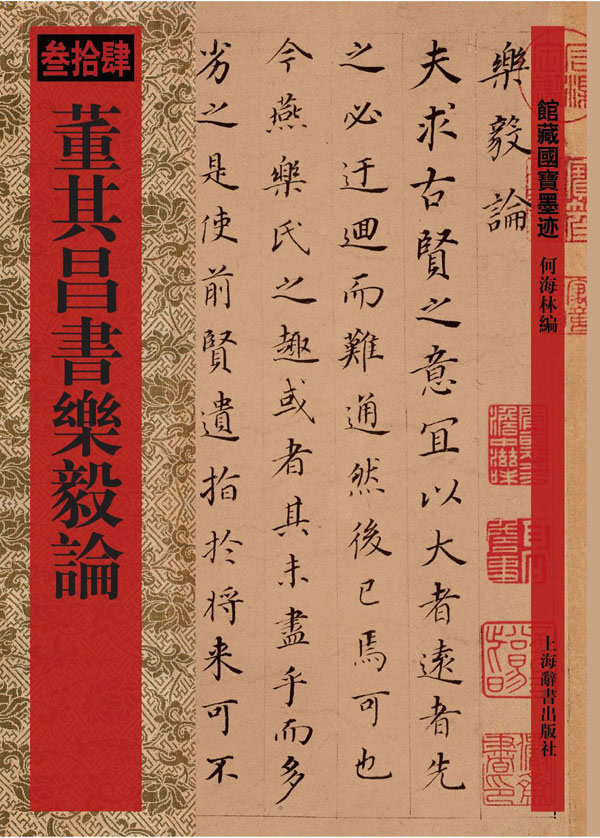 叁拾肆
董其昌書樂毅論
館藏國寶墨迹
何海林編
上海辭書出版社
樂毅論
夫求古賢之意宜以大者遠者先
之必迂迴而難通然後已焉可也
今燕樂氏之趣或者其未盡乎而多
劣之是使前賢遺指於将来可不